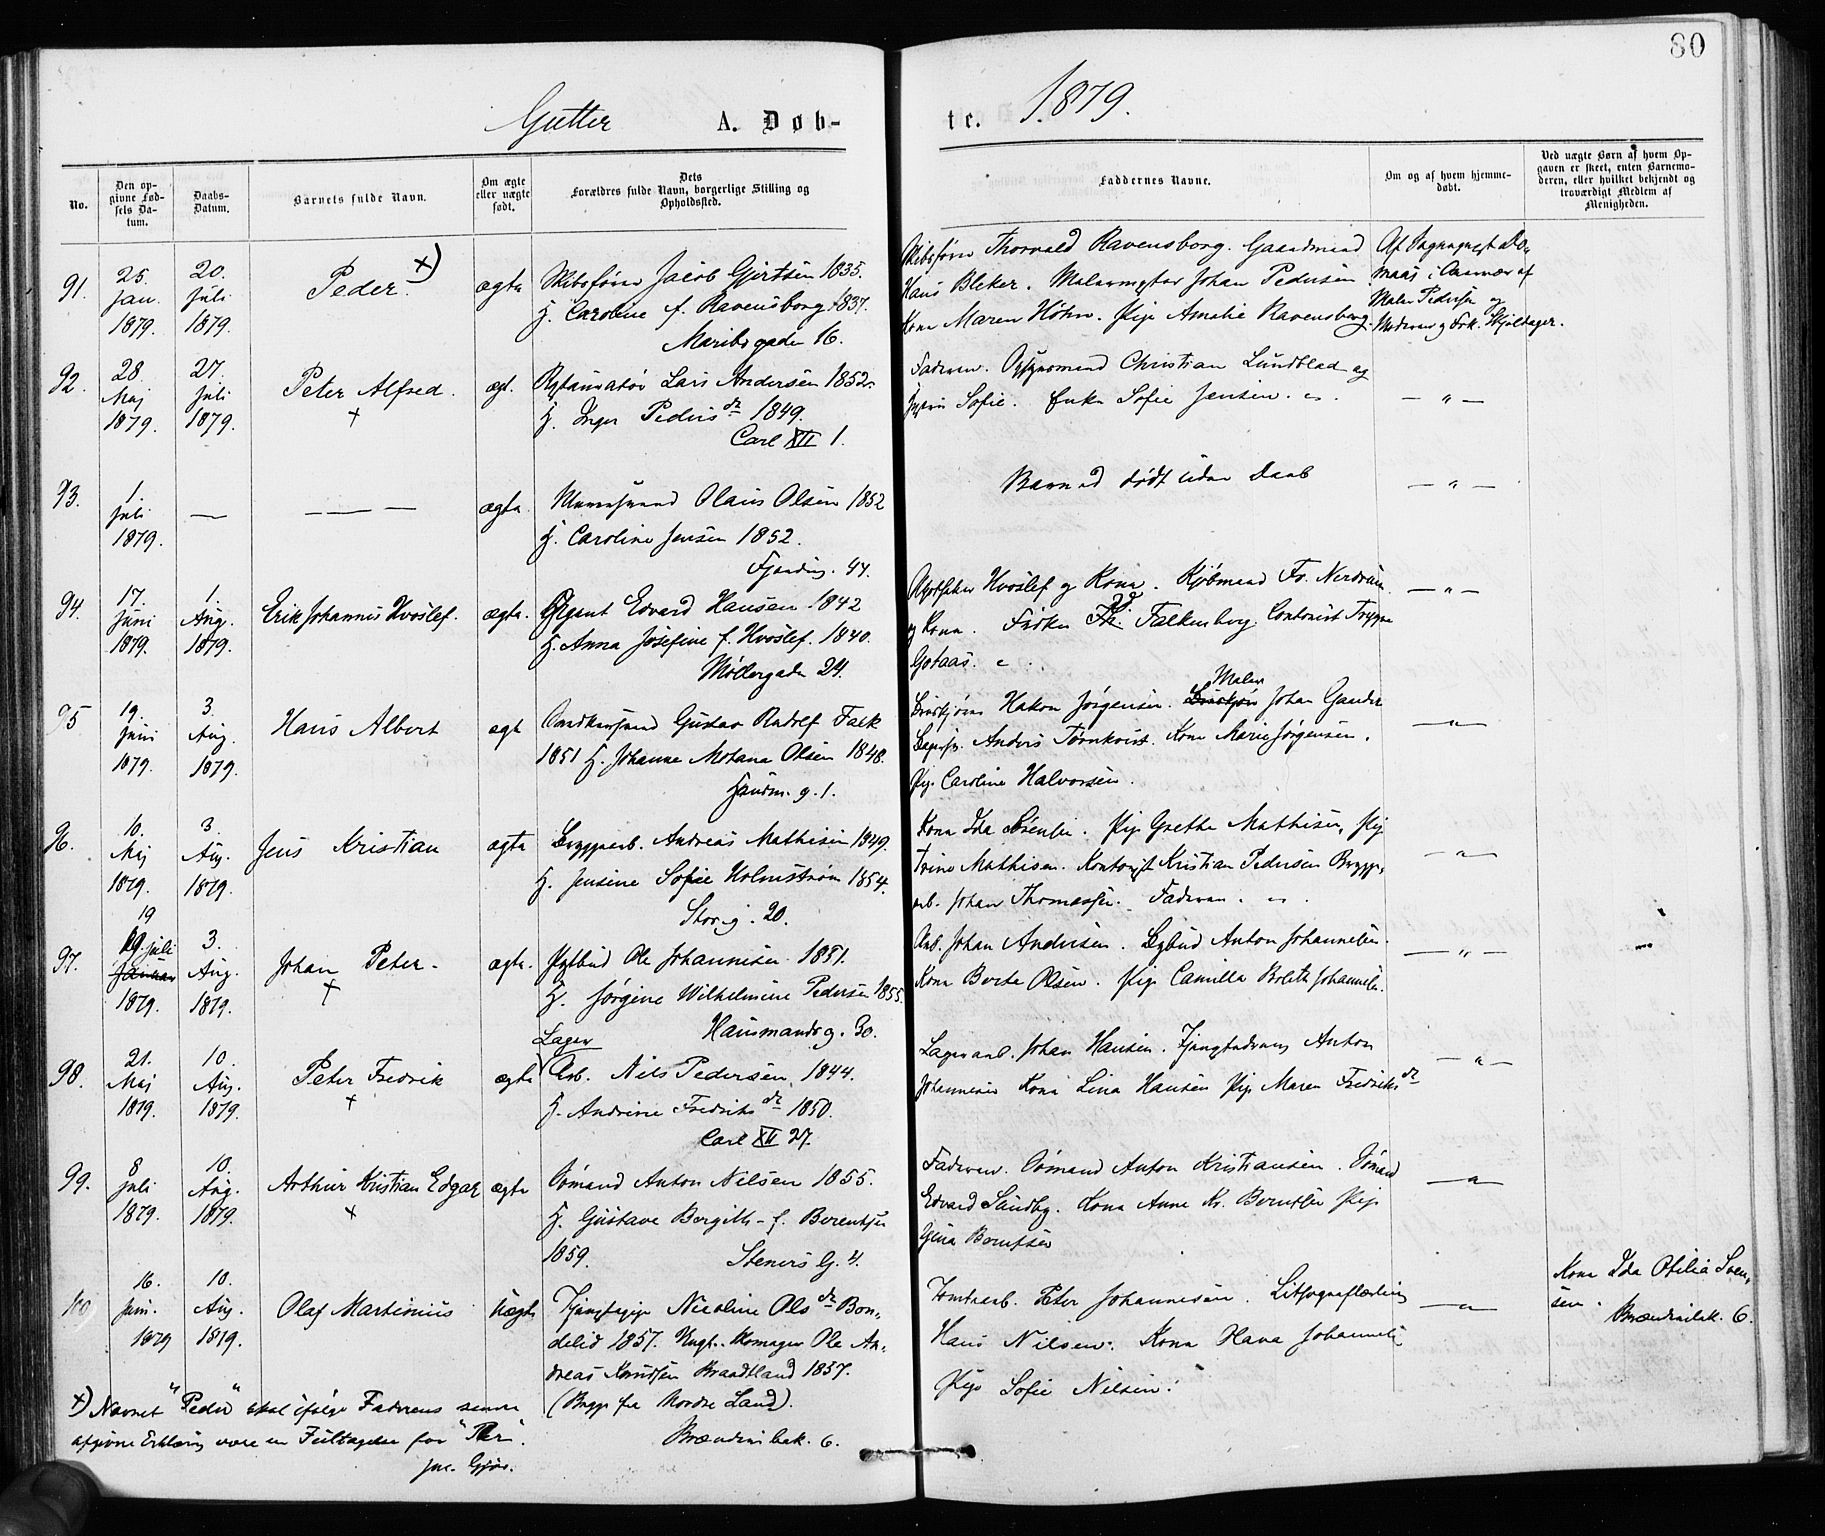 80
Gutter A. Døb-
te. 1879.
No.
Den op-
givne Fød-
sels Da-
tum.
Daabs-
Datum.
Barnets fulde Navn.
Om ægte
eller uægte
født.
Dets
Forældres fulde Navn, borgerlige Stilling og
Opholdssted.
Faddernes Navne.
Om og af hvem hjemme-
døbt.
Ved uægte Børn af hvem Op-
gaven er skeet, enten Barnemo-
deren, eller hvilket bekjendt og
troværdigt Medlem af
Menigheden.
91.
25.
Jan.
1879.
20.
Juli
1879.
Peder. x)
ægte
Skibsfører Jacob Gjertsen 1835.
H. Caroline f. Ravensborg 1837.
Maribogaden 16.
Skibsfører Thorvald Ravensborg. Gaardmand
Hans Bleker. Malermester Johan Pedersen
Kone Maren Höhn. Pige Amalie Ravensberg.
Maler Pedersen og
92.
28.
Maj
1879.
27.
Juli
1879.
Peter Alfred.
+
ægt.
Restauratør Lars Andersen 1852.
H. Inger Peders dr 1849.
Carl XII 1.
Faderen. Opsynsmand Christian Lundblad og
Sofie. Enke Sofie Jensen.
— " —
93.
1.
Juli
1879.
—
— — —
ægte
Murersvend Olaus Olsen 1852
H. Caroline Jensen 1852.
Fjerding. 44.
Barnet dødt uden Daab
— " —
94.
17.
Juni
1879.
1.
Aug.
1879.
Erik Johannes Hvoslef.
ægte.
Edvard Hansen 1842
H. Anna Josefine f. Hvoslef. 1840.
Møllergaden 24.
Apotheker Hvoslef og Kone. Kjøbmand Fr. Nerdrum
og Kone. Frøken Th. Falkenberg. Contorist Trygve
Gotaas.
— " —
95
19.
Juni
1879.
3.
Aug.
1879.
Hans Albert
ægt
Gustav Rudolf Falk
1851 H. Johanne Motana Olsen 1848.
Hausm. g. 1.
Maler
Hakon Jørgensen. Johan Gander
Anders Tørnkvist. Kone Marie Jørgensen.
Pige Caroline Halvorsen.
— " —
96.
10.
Maj
1879.
3.
Aug.
1879.
Jens Kristian
ægte
Bryggearb. Andreas Mathisen 1849.
H. Jensine Sofie Holmstrøm 1854.
Storg. 20.
Kone Ida Sørensen. Pige Grethe Mathisen, Pige
Trine Mathisen. Kontorist Kristian Pedersen Brygge,
arb. Johan Thomassen. Faderen.
— " —
97.
19
19. Juli
Januar
1879.
3.
Aug.
1879.
Johan Peter.
+
ægte.
Postbud Ole Johannesen 1851.
H. Jørgine Wilhelmine Pedersen 1855.
Hausmandsg. 30.
Arb. Johan Andersen. Bybud Anton Johannesen.
Kone Berte Olsen. Pige Camilla Bolette Johannesen.
— " —
98.
21.
Maj
1879.
10.
Aug.
1879.
Peter Fredrik
+
ægte
Lager
Arb. Nils Pedersen, 1844.
H. Andrine Fredriks dr 1850.
Carl XII 27.
Lagerarb. Johan Hansen. Anton
Johannesen Kone Lina Hansen Pige Maren Fredriks dr
— " —
99.
8
Juli
1879.
10.
Aug.
1879.
Arthur Kristian Edgar
+
ægte
Sømand Anton Nilsen 1855.
H. Gustave Bergitte f. Berentsen
1859. Steners G. 4.
Faderen. Sømand Anton Kristiansen. Sømand
Edvard Sandby. Kone Anne K. Berntsen Pige
Gina Berntsen
— " —
100
16.
Juni.
1879
10.
Aug.
1879.
Olaf Martinius
Uægte
Tjenestepige Nicoline Ols dr Bon-
delid 1857. Ungk. Skomager Ole An-
dreas Knudsen Brandtland 1857.
(Begge fra Nordre Land).
Brænneribak. 6.
Tomtearb. Peter Johannesen. Litografilærling
Hans Nilsen. Kone Hana Johannesen
Pige Sofie Nilsen.
— " —
Kone Ida Otilia Sven-
sen.
Brænneribak. 6.
x) Navnet "Peder" skal ifølge Faderens senere
afgivne Erklæring være en Feiltagelse for "Per".